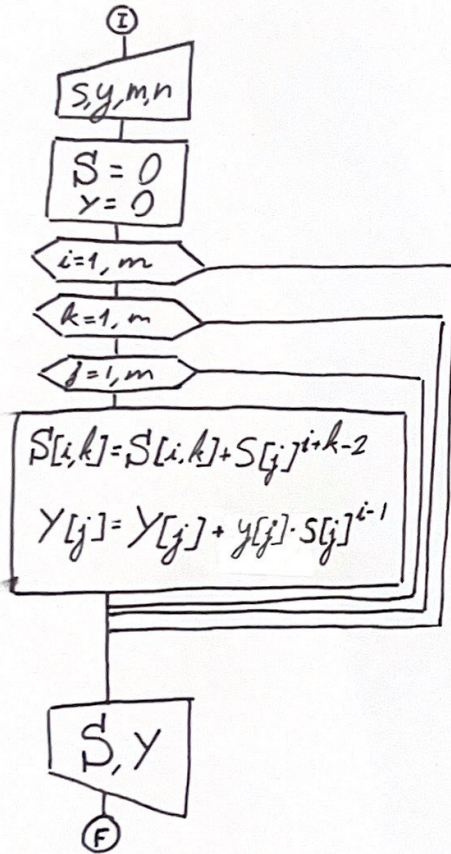 I
s,y,m,n
S = 0
Y = 0
i=1, m
k=1, m
j=1, m
S[i,k]=S[i,k]+S[j]^{i+k-2}
Y[j]=Y[j]+y[j]·S[j]^{i-1}
S, Y
F